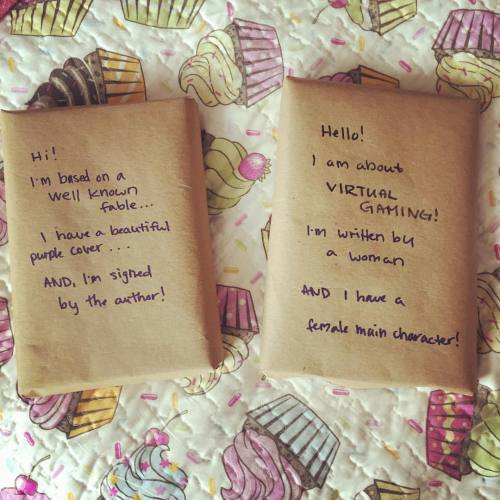 Hi!
I'm based on a
well known
fable...
I have a beautiful
purple cover...
AND, I'm signed
by the author!
Hello!
I am about
VIRTUAL
GAMING!
I'm written by
a woman
AND I have a
female main character!